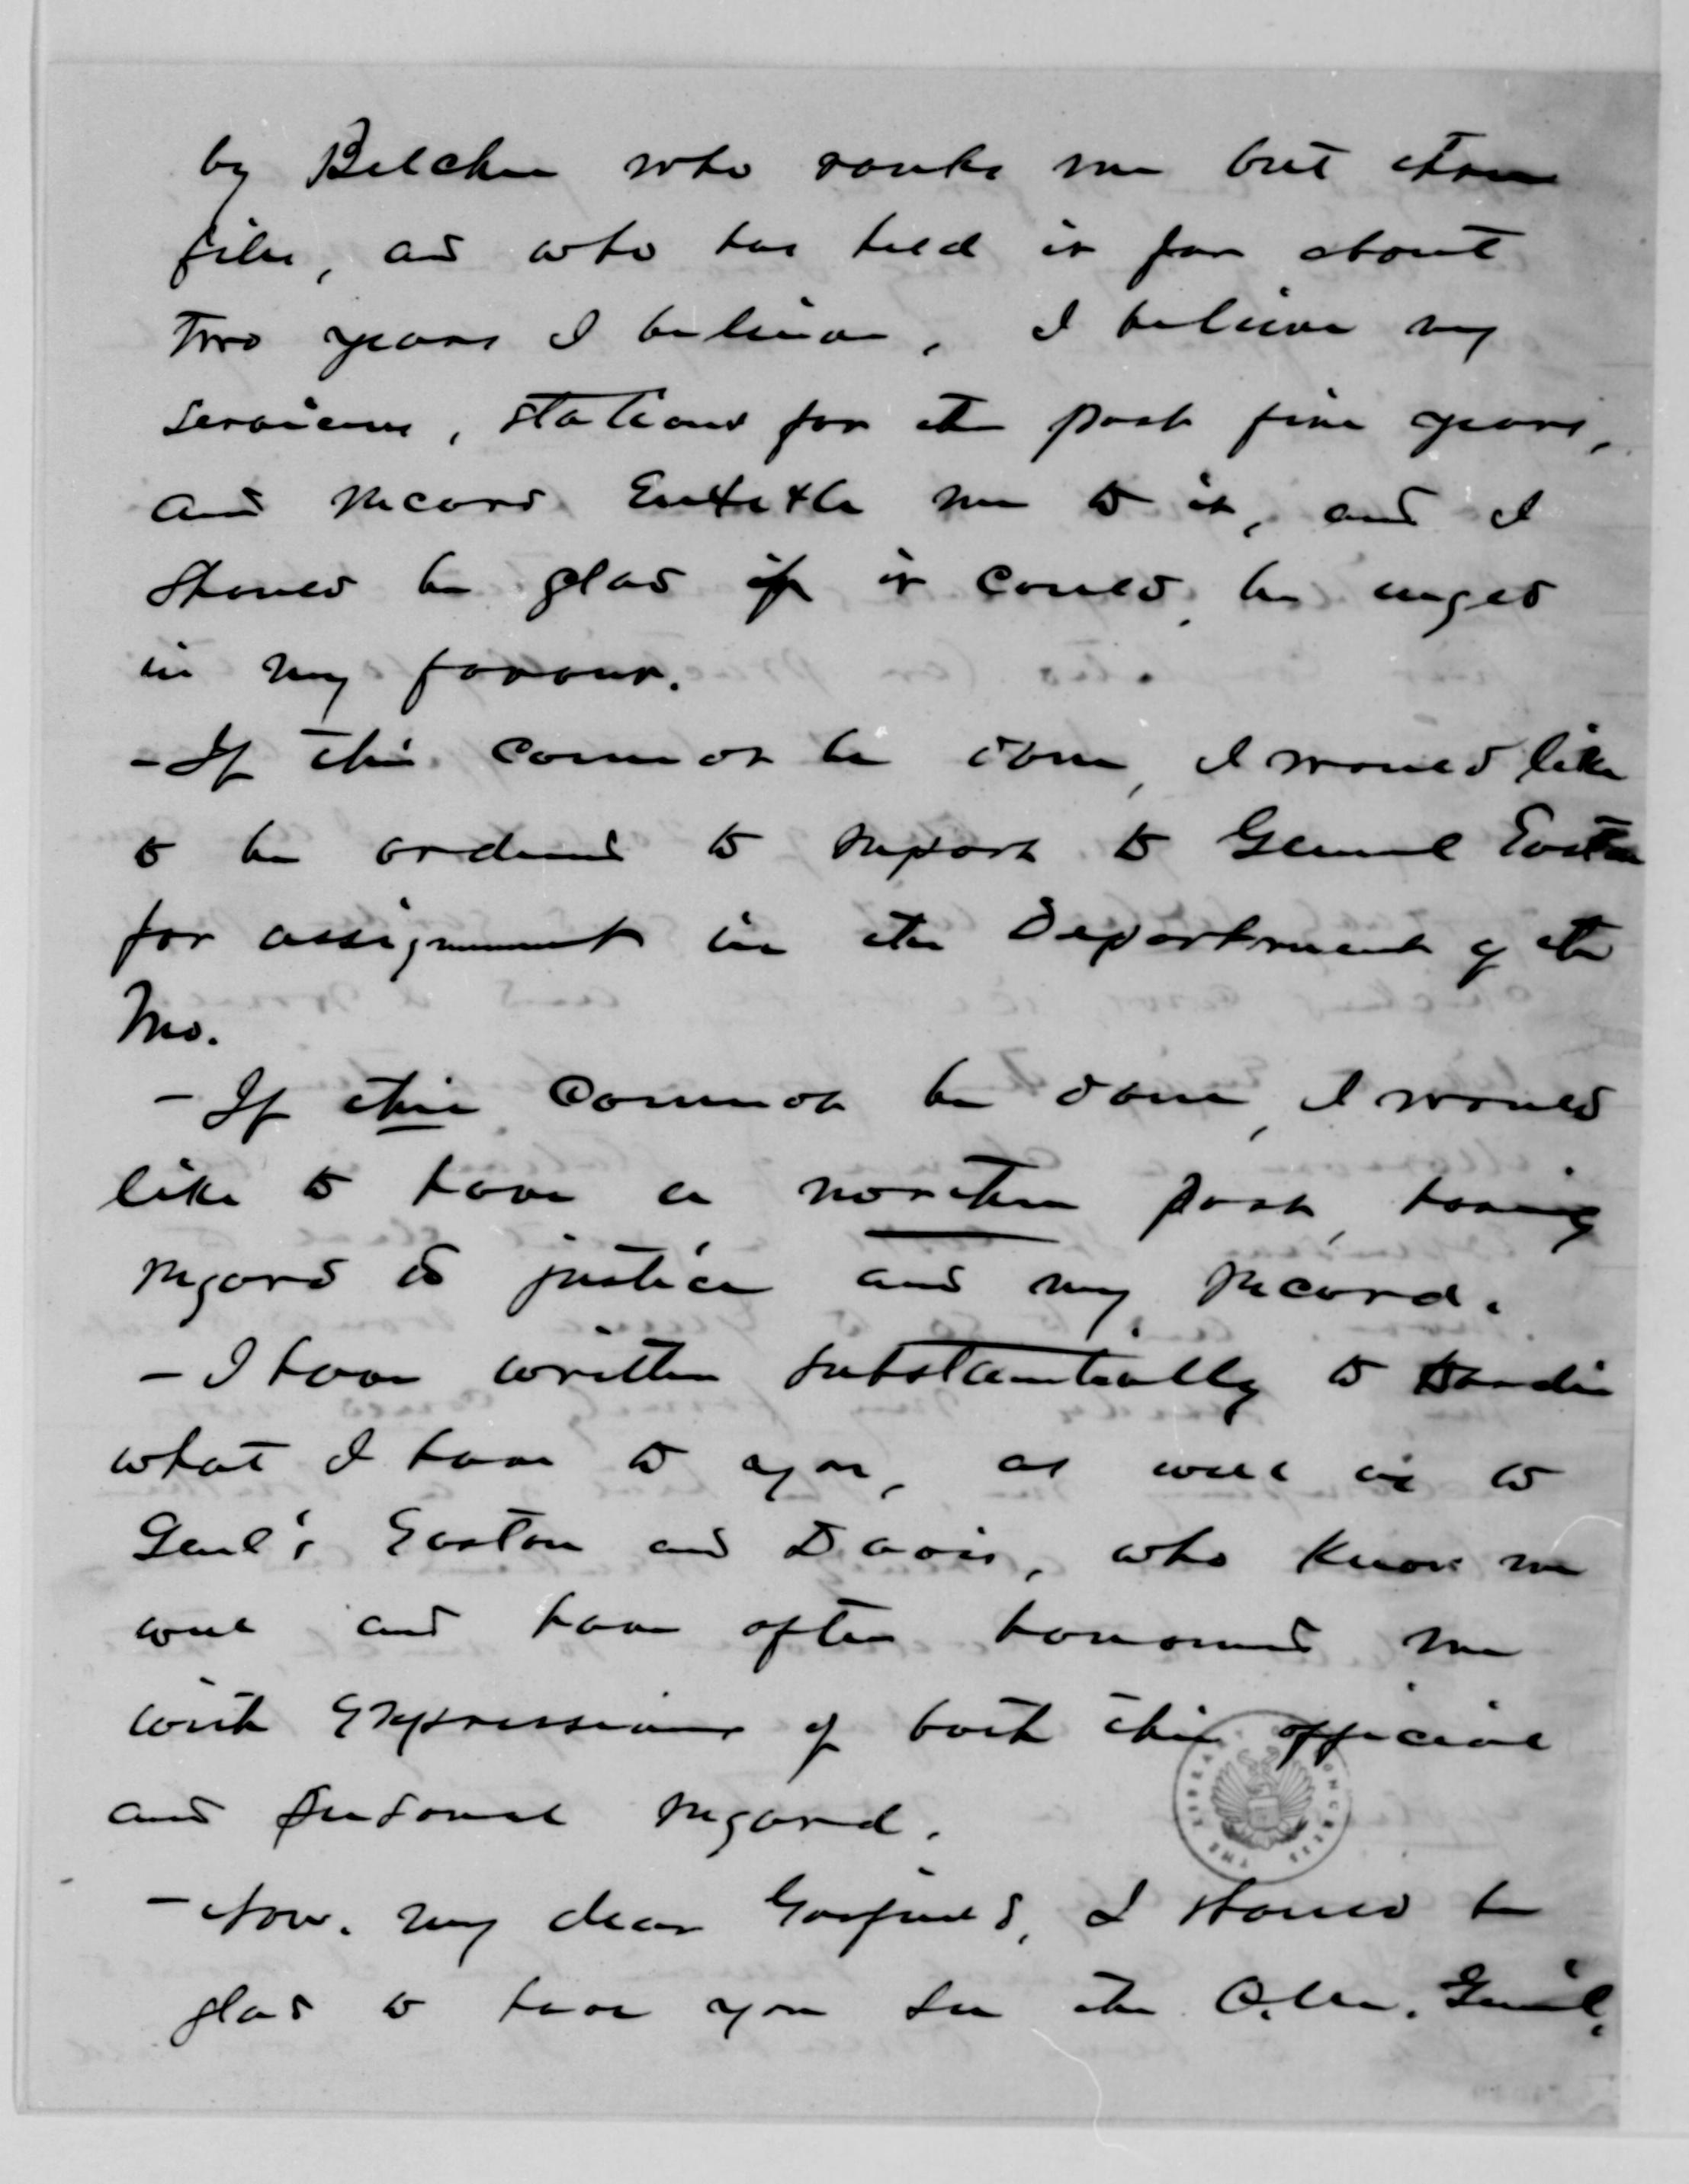 by Belcher who ranks me but three
files, and who has held it for about
two years I believe, I believe my
services, stations for the past five years,
and record entitle me to it, and I
should be glad if it could be urged
in my favour.
- If this cannot be done, I would like
to be ordered to report to General Easton
for assignment in the Department of the
Mo.
- If this cannot be done, I would
like to have a northern post, having
regard to justice and my record.
- I have written substantially to
what I have to you, as well as to
Genl's Easton and Davis, who know me
well and have often honoured me
with expressions of both their official
and personal regard.
- Now, my dear Garfield, I should be
glad to have you see the Q.M. Genl.
THE LIBRARY OF CONGRESS